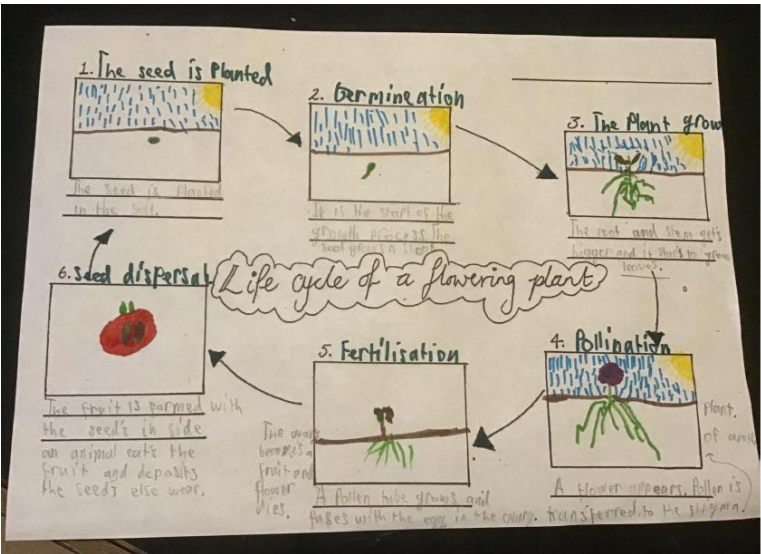 1. The seed is Planted
The seed is Planted
in the soil.
2. Germineation
It is the start of the
growth process. The
seed grows a shoot
3. The Plant grow
The root and stem gets
bigger and it starts to grow
leaves.
Life cycle of a flowering plant
4. Pollination
A flower appears. Pollen is
transferred to the stigma.
Plant.
of
5. Fertilisation
A Pollen tube grows and
fuses with the egg in the ovary.
The ovary
becomes a
fruit and
flower
dies.
6. Seed dispersal
The fruit is formed with
the seed's in side
an animal eats the
fruit and deposits
the seeds else wear.